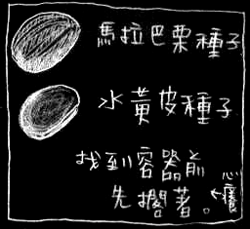 馬拉巴栗種子
水黃皮種子
找到容器前
先擱著。
心癢